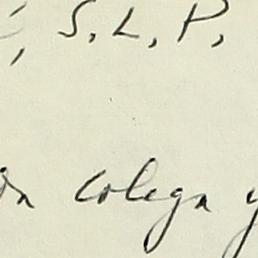 S.L.P.
colega y